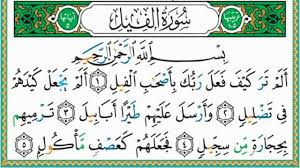 ترتيبها سُورَةُ الْفِيلِ آياتها
١٠٥ ٥
بِسْمِ اللَّهِ الرَّحْمَٰنِ الرَّحِيمِ
أَلَمْ تَرَ كَيْفَ فَعَلَ رَبُّكَ بِأَصْحَٰبِ الْفِيلِ ١ أَلَمْ يَجْعَلْ كَيْدَهُمْ
فِي تَضْلِيلٍ ٢ وَأَرْسَلَ عَلَيْهِمْ طَيْرًا أَبَابِيلَ ٣ تَرْمِيهِم
بِحِجَارَةٍ مِّن سِجِّيلٍ ٤ فَجَعَلَهُمْ كَعَصْفٍ مَّأْكُولٍ ٥